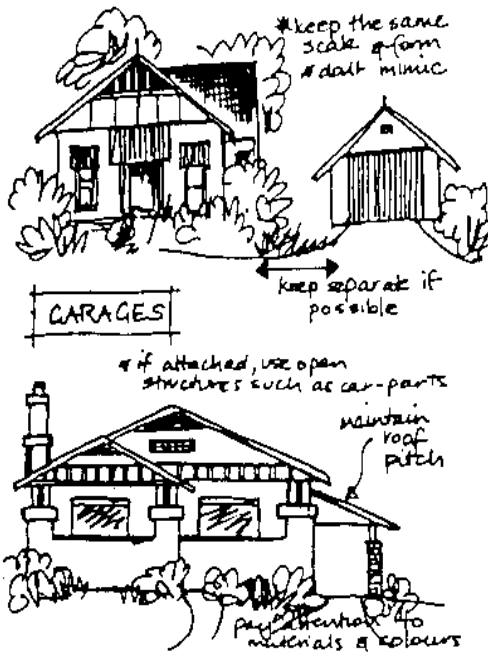 * keep the same
scale & form
* don't mimic
keep separate if
possible
GARAGES
* if attached, use open
structures such as car-ports
maintain
roof
pitch
pay attention to
materials & colours